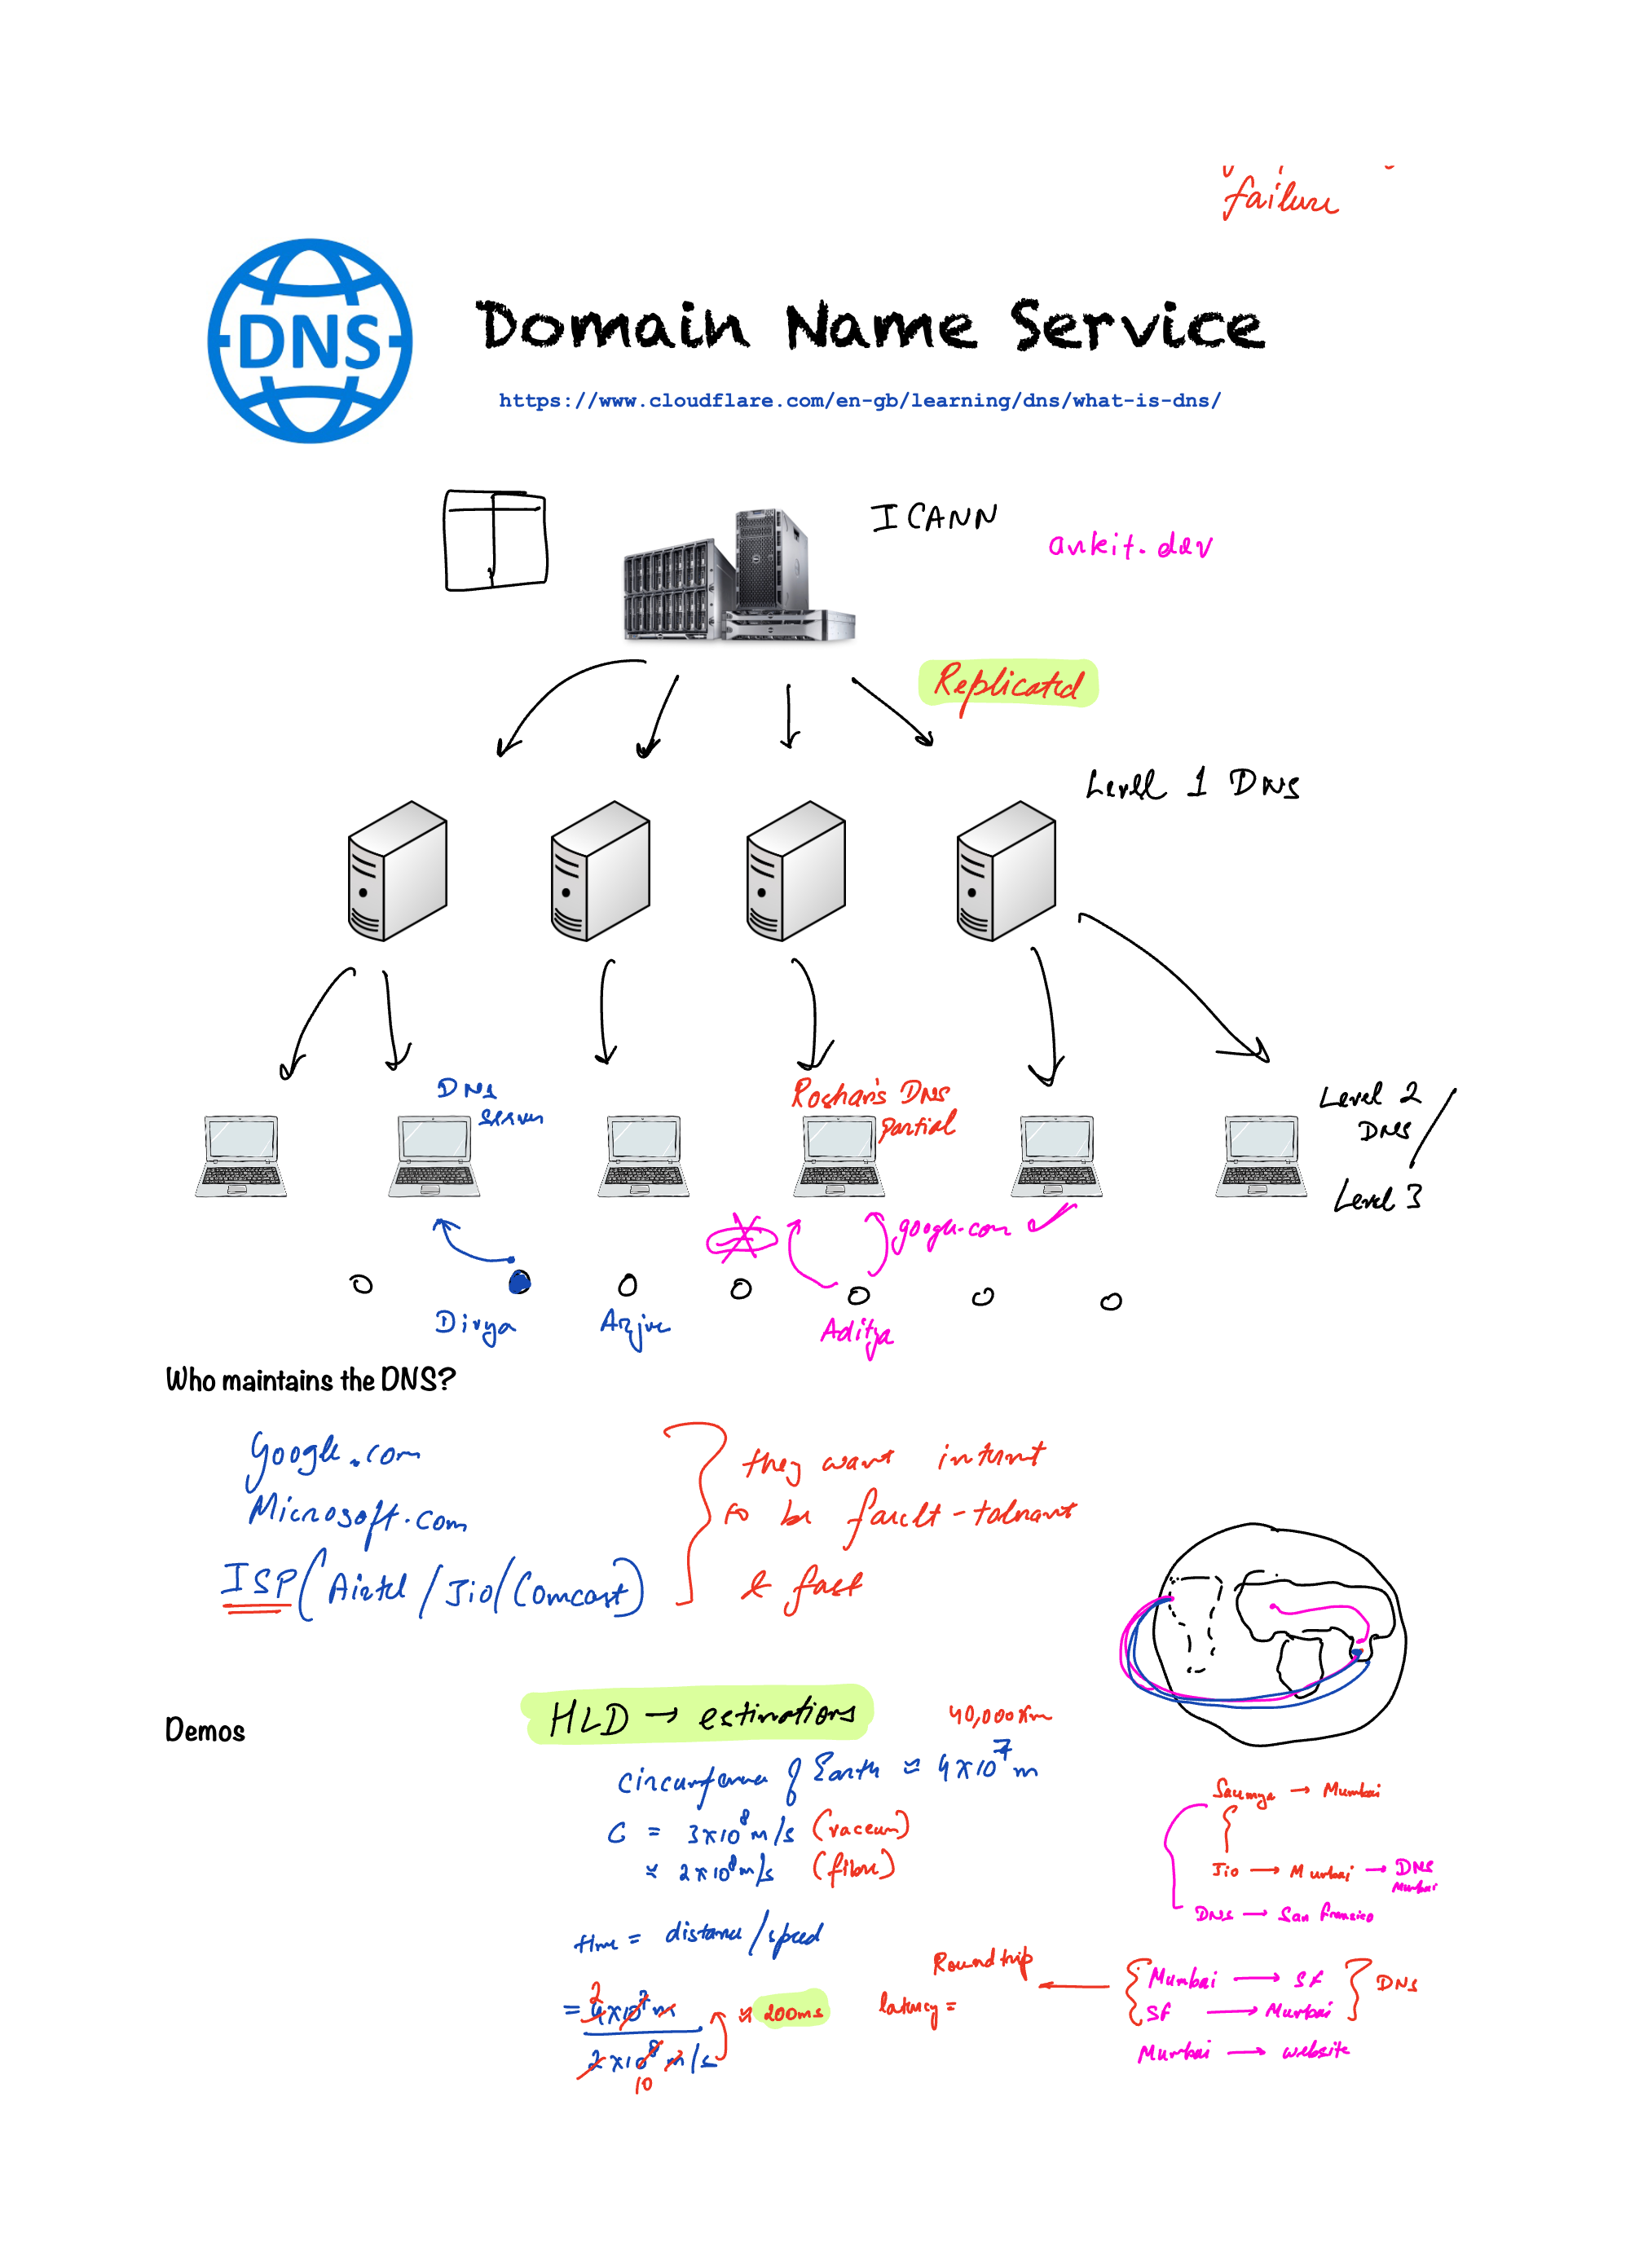 failure
DNS
Domain Name Service
https://www.cloudflare.com/en-gb/learning/dns/what-is-dns/
ICANN
ankit.dev
Replicated
Level 1 DNS
DNS
server
Roshan's DNS
partial
Level 2
DNS /
Level 3
google.com
Divya
Aditya
Who maintains the DNS?
Google.com
Microsoft.com
ISP (Airtel / Jio / Comcast)
they want
to be fault-tolerant
& fast
Demos
HLD → estimations
40,000 km
circumference of Earth ≈ 4×10⁷ m
C = 3×10⁸ m/s (vacuum)
≈ 2×10⁸ m/s (fibre)
time = distance/speed
2
= 4×10⁷ m
2×10⁸ m/s
10
≈ 200ms
Saumya → Mumbai
Jio → Mumbai → DNS
Mumbai
DNS → San Fransico
Round trip
latency =
Mumbai → SF
SF → Mumbai
DNS
Mumbai → website